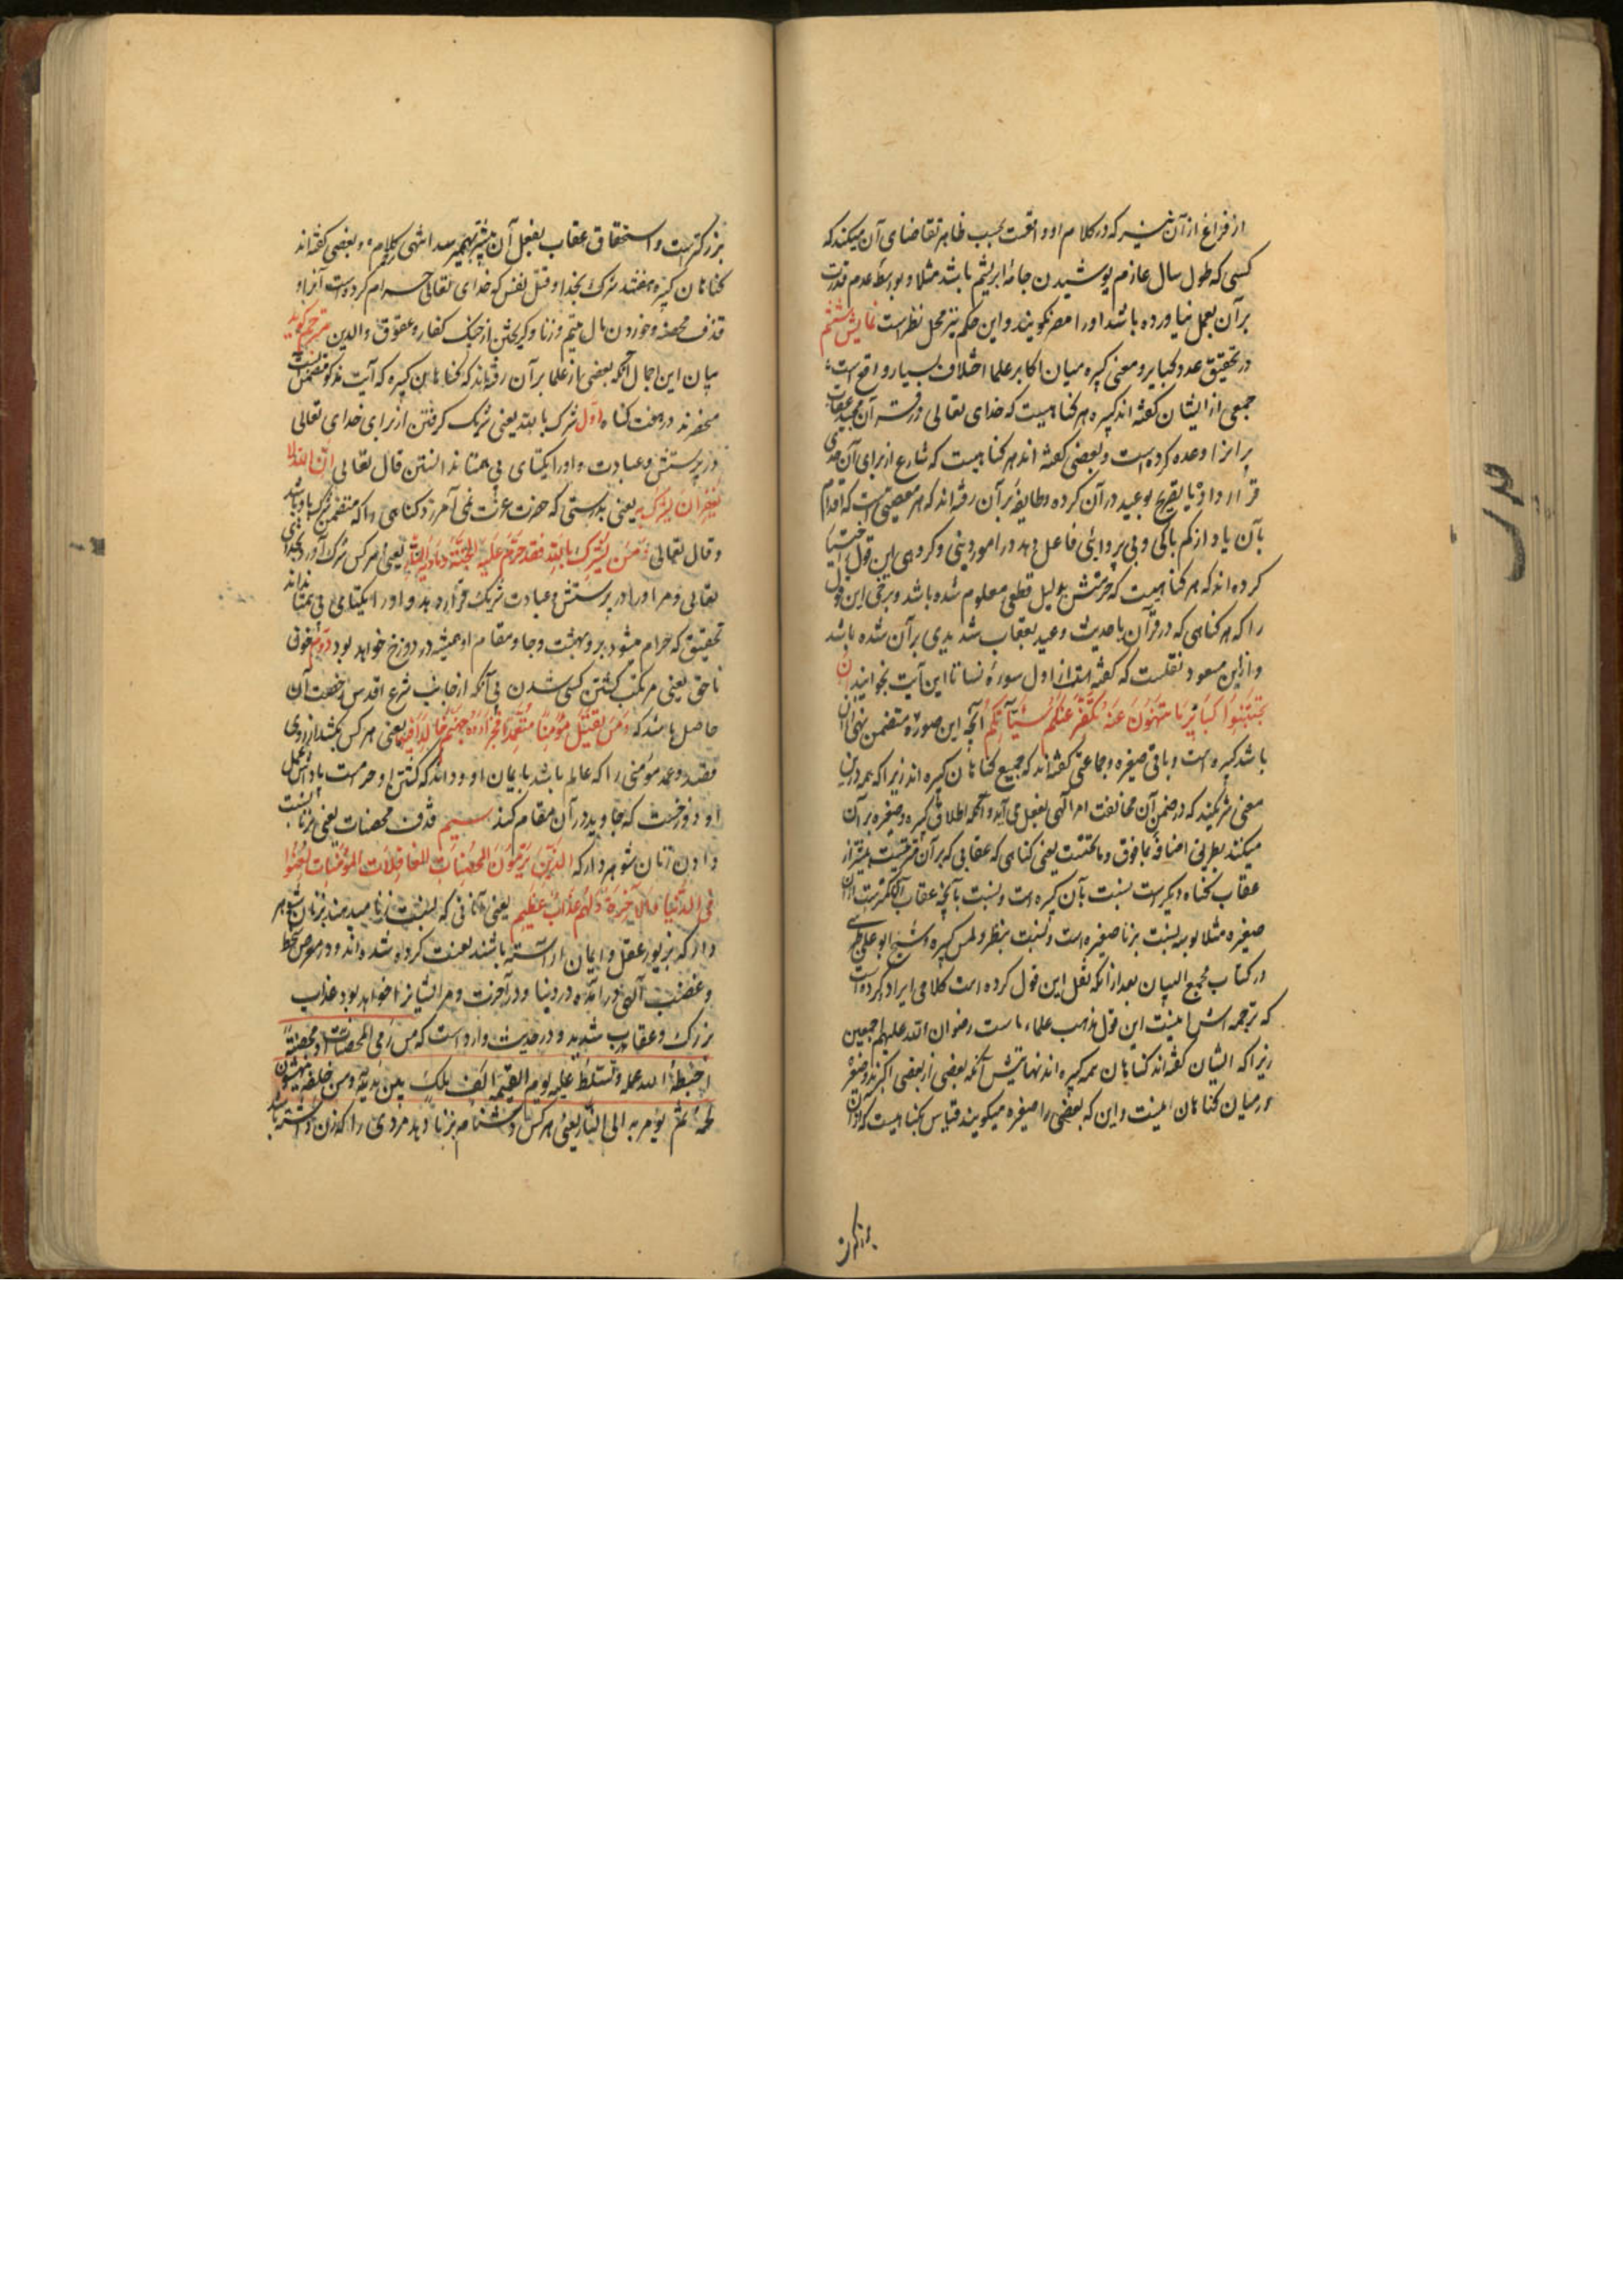 از فراغ از آن نیز که در کلام او واقعست بحسب ظاهر تقاضای آن میکند که
کسی که طول سال عازم پوشیدن جامهٔ ابریشم باشد مثلا و بواسطهٔ عدم قدرت
بر آن بعمل نیاورده باشد او را مصر نگویند و این حکم نیز محل نظر است نمایش ششم
در تحقیق عدد کبایر و معنی کبیره میان اکابر علما اختلاف بسیار واقع است
جمعی از ایشان گفته اند کبیره هر گناهیست که خدای تعالی در قرآن مجید عقاب
بر انرا وعده کرده است و بعضی گفته اند هر گناهیست که شارع از برای آن حدی
قرار داد و یا تصریح بوعید در آن کرده و طایفهٔ بر آن رفته اند که هر معصیتی است که اقدام
بآن یاد از کم باکی و بی پروایی فاعل دهد در امور دینی و گروهی این قول اختیار
کرده اند که هر گناهیست که حرمتش بدلیل قطعی معلوم شده باشد و برخی این قول
را که هر گناهی که در قرآن یا حدیث وعید بعقاب شدیدی بر آن شده باشد
و از ابن مسعود نقلست که گفته است از اول سورهٔ نسا تا این آیت بخوانید ان
تجتنبوا کبایر ما تنهون عنه نکفر عنکم سیئاتکم آنچه این صوره متضمن نهی از آن
باشد کبیره است و باقی صغیره و جماعتی گفته اند که جمیع گناهان کبیره اند زیرا که همه در این
معنی شریکند که در ضمن آن مخالفت امر الهی بفعل می آید و آنکه اطلاق کبیره و صغیره بر آن
میکنند بطریق اضافهٔ بما فوق و ما تحتست یعنی گناهی که عقابی که بر آن مترتبست بیشتر از
عقاب گناه دیگر است نسبت بآن کبیره است و نسبت بآنچه عقاب آن کمتر است از آن
صغیره مثلا بوسه نسبت بزنا صغیره است و نسبت بنظر و لمس کبیره و شیخ ابو علی طبرسی
در کتاب مجمع البیان بعد از انکه نقل این قول کرده است کلامی ایراد کرده است
که ترجمه اش اینست این قول مذهب علماء ماست رضوان الله علیهم اجمعین
زیرا که ایشان گفته اند گناهان همه کبیره اند نهایتش آنکه بعضی از بعضی اکبرند و صغیره
در میان گناهان نیست و این که بعضی را صغیره میگویند قیاس بگناهیست که از آن
بزرگتر است و استحقاق عقاب بفعل آن بیشتر بهم میرسد انتهی کلامه و بعضی گفته اند
گناهان کبیره هفتند شرک بخدا و قتل نفس که خدای تعالی حرام کرده است آنرا و
قذف محصنه و خوردن مال یتیم و زنا و گریختن از جنگ کفار و عقوق والدین مترجم گوید
بیان این اجمال آنکه بعضی از علما بر آن رفته اند که گناهان کبیره که آیت مذکور متضمن آنست
منحصرند در هفت گناه اول شرک بالله یعنی شریک گرفتن از برای خدای تعالی
در پرستش و عبادت و او را یکتای بی همتا ندانستن قال تعالی ان الله لا
یغفر ان یشرک به یعنی بدرستی که حضرت عزت نمی آمرزد گناهی را که متضمن شرک باو باشد
و قال تعالی و من یشرک بالله فقد حرم علیه الجنة و ماویه النار یعنی هر کس شرک آورد بخدای
تعالی و مر او را در پرستش و عبادت شریک قرار دهد و او را یکتای بی همتا نداند
تحقیق که حرام میشود بر و بهشت و جا و مقام او همیشه در دوزخ خواهد بود دوم خون
ناحق یعنی مرتکب کشتن کسی شدن بی آنکه از جانب شرع اقدس رخصت آن
حاصل باشد که و من یقتل مؤمنا متعمدا فجزاؤه جهنم خالدا فیها یعنی هر کس بکشد از روی
قصد و عمد مؤمنی را که عالم باشد بایمان او و داند که کشتن او حرامست پاداش عمل
او دوزخست که جاوید در آن مقام کند سیم قذف محصنات یعنی بزنا نسبت
دادن زنان شوهر دار که الذین یرمون المحصنات الغافلات المؤمنات لعنوا
فی الدنیا و الآخرة و لهم عذاب عظیم یعنی آنانی که نسبت زنا میدهند بزنان شوهر
دار که بزیور عقل و ایمان آراسته باشند لعنت کرده شده اند و در معرض سخط
و غضب الهی در آمده در دنیا و در آخرت و مر ایشانرا خواهد بود عذاب
بزرگ و عقاب شدید و در حدیث وارد است که من رمی المحصنات او محصنة
احبطه الله عمله و تسلط علیه یوم القیمه الف ملک من بین یدیه و من خلفه ینهشون
لحمه ثم یؤمر به الی النار یعنی هر کس دشنام بزنا دهد مردی را که زن داشته باشد